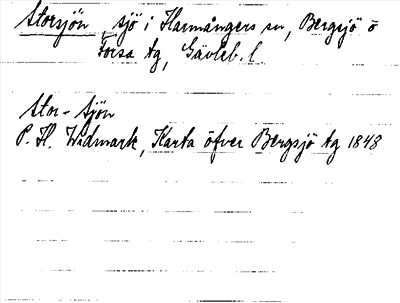 Storsjön, sjö i Harmångers sn, Bergsjö o
Forsa tg, Gävleb. l.
Stor-Sjön
P. H. Widmark, Karta öfver Bergsjö tg 1848